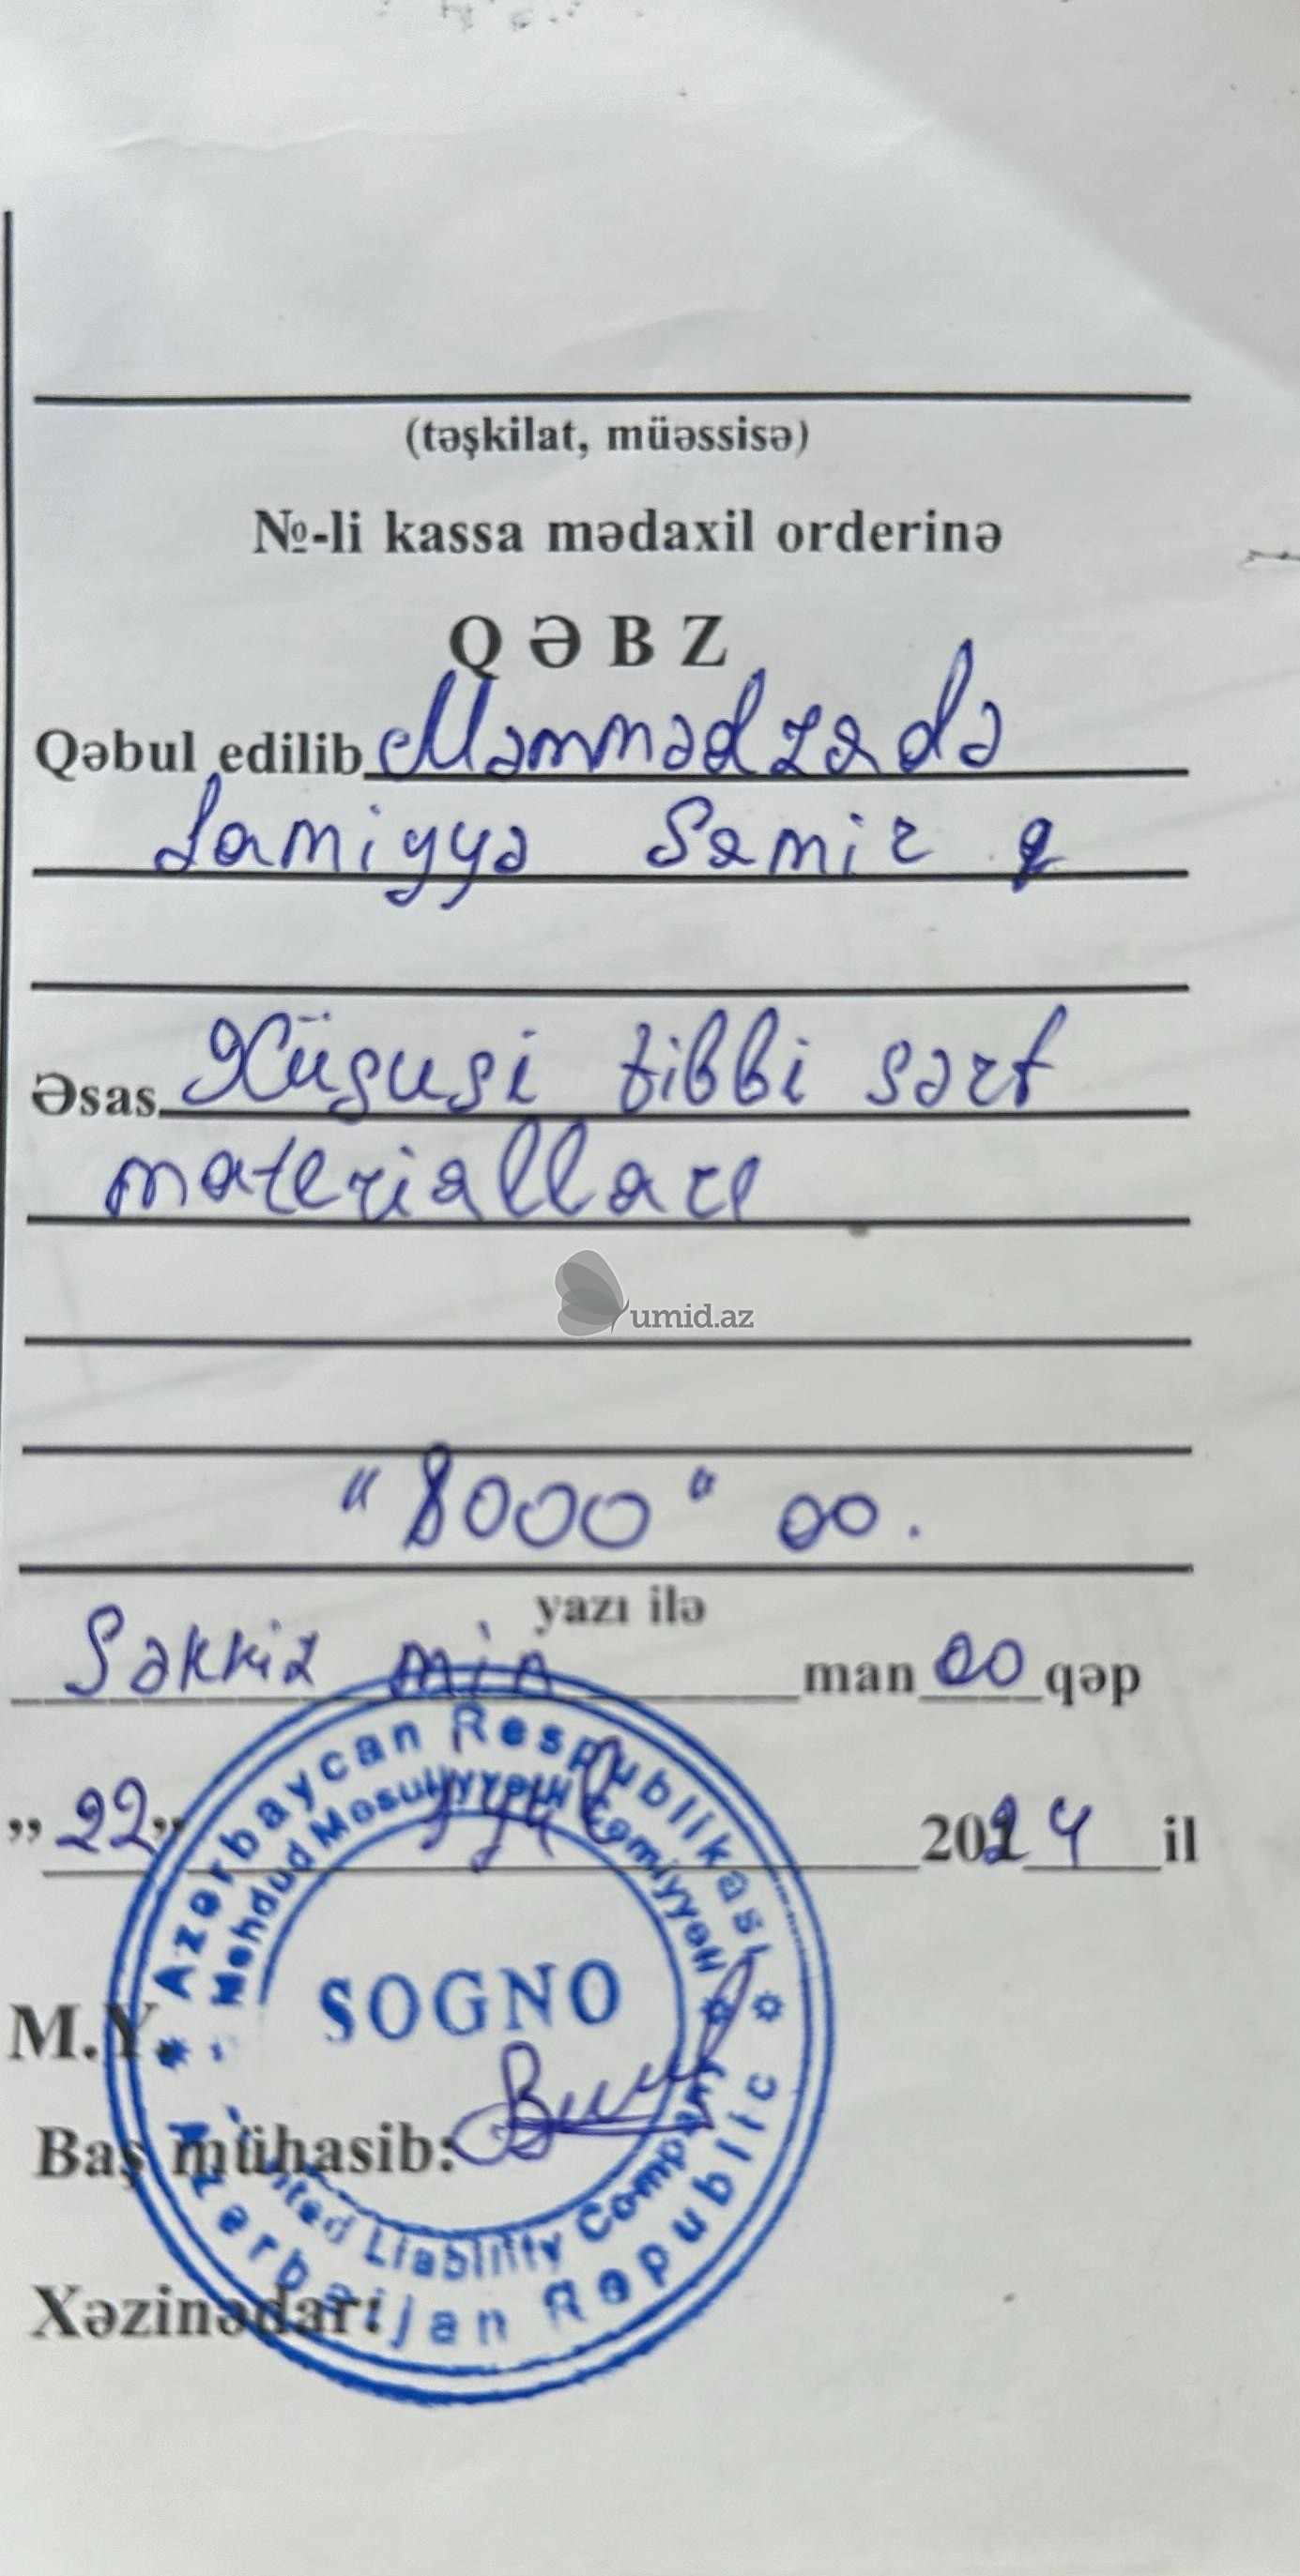 (təşkilat, müəssisə)
№-li kassa mədaxil orderinə
QƏBZ
Qəbul edilib Məmmədzadə
Lamiyyə Samir q
Əsas Xüsusi tibbi sərf
materialları
umid.az
"8000" 00.
yazı ilə
Səkkiz min man 00 qəp
"22" iyul 2024 il
Azərbaycan Respublikası
Məhdud Məsuliyyətli Cəmiyyəti
SOGNO
M.Y.
Baş mühasib:
Limited Liability Company
Azerbaijan Republic
Xəzinədar: